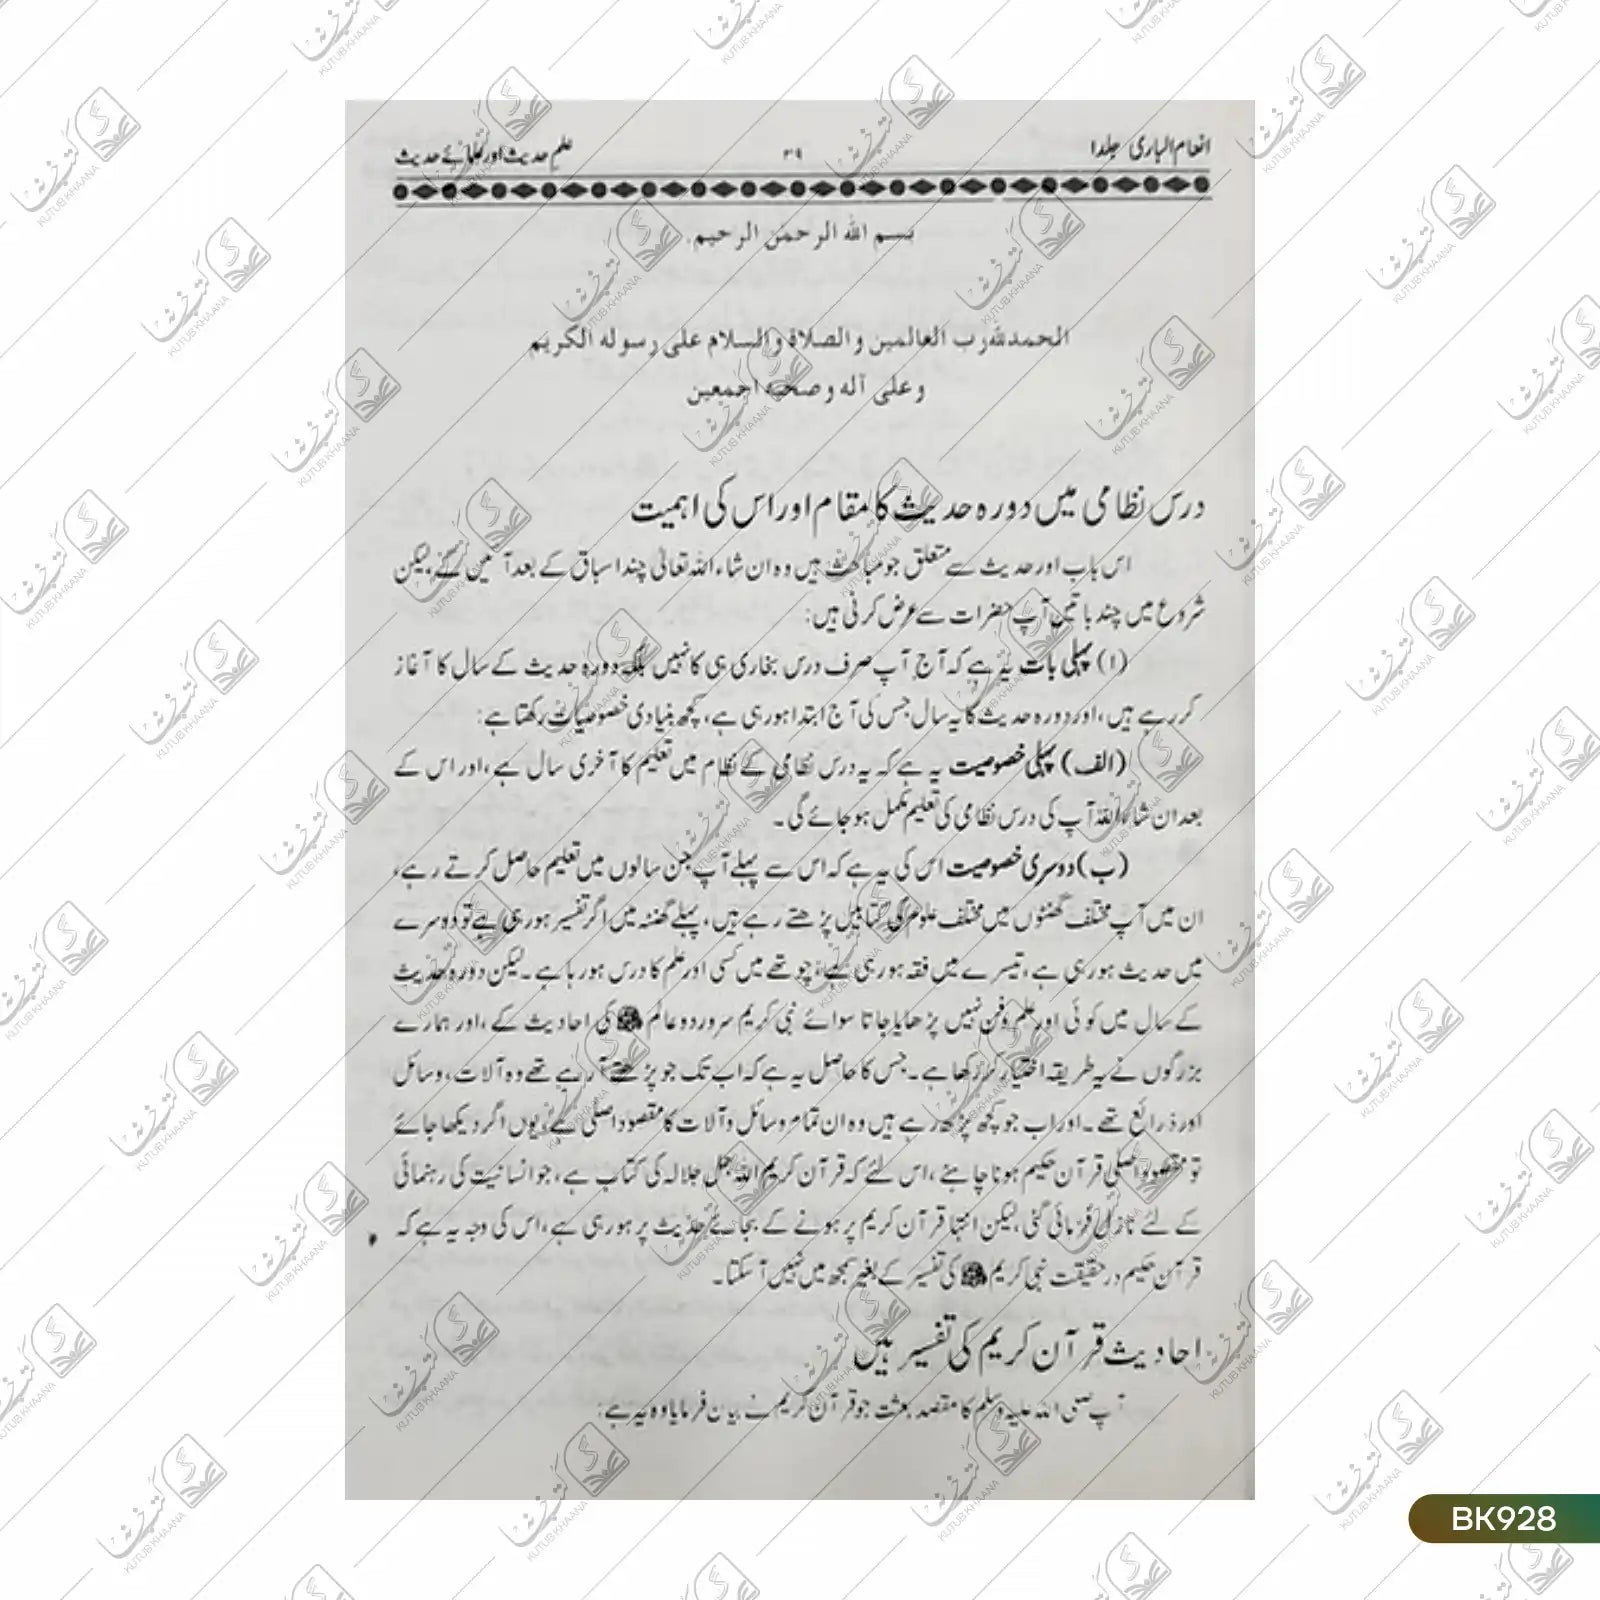 انعام الباری جلد ۱
۳۹
علمِ حدیث اور علمائے حدیث
بسم الله الرحمن الرحيم.
الحمد لله رب العالمين والصلاة والسلام على رسوله الكريم
وعلى آله وصحبه اجمعين
درس نظامی میں دورہ حدیث کا مقام اور اس کی اہمیت
اس باب اور حدیث سے متعلق جو مباحث ہیں وہ ان شاء اللہ تعالیٰ چند اسباق کے بعد آئیں گے لیکن
شروع میں چند باتیں آپ حضرات سے عرض کرنی ہیں:
(۱) پہلی بات یہ ہے کہ آج آپ صرف درس بخاری ہی کا نہیں بلکہ دورہ حدیث کے سال کا آغاز
کر رہے ہیں، اور دورہ حدیث کا یہ سال جس کی آج ابتدا ہو رہی ہے، کچھ بنیادی خصوصیات رکھتا ہے:
(الف) پہلی خصوصیت یہ ہے کہ یہ درس نظامی کے نظام میں تعلیم کا آخری سال ہے، اور اس کے
بعد ان شاء اللہ آپ کی درس نظامی کی تعلیم مکمل ہو جائے گی۔
(ب) دوسری خصوصیت اس کی یہ ہے کہ اس سے پہلے آپ جن سالوں میں تعلیم حاصل کرتے رہے،
ان میں آپ مختلف گھنٹوں میں مختلف علوم کی کتابیں پڑھتے رہے ہیں، پہلے گھنٹہ میں اگر تفسیر ہو رہی ہے تو دوسرے
میں حدیث ہو رہی ہے، تیسرے میں فقہ ہو رہی ہے، چوتھے میں کسی اور علم کا درس ہو رہا ہے۔ لیکن دورہ حدیث
کے سال میں کوئی اور علم و فن نہیں پڑھایا جاتا سوائے نبی کریم سرور دو عالم ﷺ کی احادیث کے، اور ہمارے
بزرگوں نے یہ طریقہ اختیار کر رکھا ہے۔ جس کا حاصل یہ ہے کہ اب تک جو پڑھتے آ رہے تھے وہ آلات، وسائل
اور ذرائع تھے۔ اور اب جو کچھ پڑھ رہے ہیں وہ ان تمام وسائل و آلات کا مقصود اصلی ہے، یوں اگر دیکھا جائے
تو مقصود اصلی قرآن حکیم ہونا چاہئے، اس لئے کہ قرآن کریم اللہ جل جلالہ کی کتاب ہے، جو انسانیت کی رہنمائی
کے لئے نازل فرمائی گئی، لیکن انتہا قرآن کریم پر ہونے کے بجائے حدیث پر ہو رہی ہے، اس کی وجہ یہ ہے کہ
قرآن حکیم در حقیقت نبی کریم ﷺ کی تفسیر کے بغیر سمجھ میں نہیں آ سکتا۔
احادیث قرآن کریم کی تفسیر ہیں
آپ صلی اللہ علیہ وسلم کا مقصد بعثت جو قرآن کریم نے بیان فرمایا وہ یہ ہے:
BK928